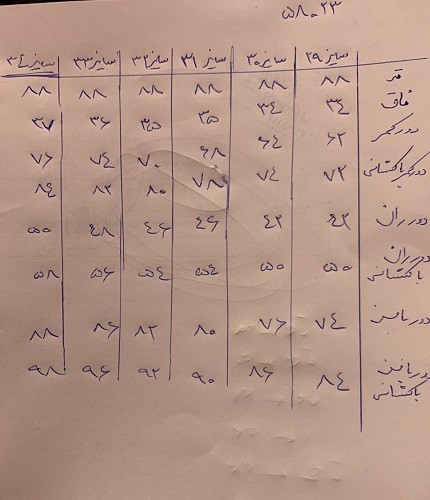 ۵۸۰۲۳
سایز ۲۹ سایز ۳۰ سایز ۳۱ سایز ۳۲ سایز ۳۳ سایز ۳۴
قد ۸۸ ۸۸ ۸۸ ۸۸ ۸۸ ۸۸
فاق ۳۴ ۳۴ ۳۵ ۳۵ ۳۶ ۳۷
دور کمر ۶۲ ۶۴ ۶۸ ۷۰ ۷۴ ۷۶
دور کمر باکشانی ۷۲ ۷۴ ۷۸ ۸۰ ۸۲ ۸۴
دور ران ۴۲ ۴۲ ۴۶ ۴۶ ۴۸ ۵۰
دور ران
باکشانی ۵۰ ۵۰ ۵۴ ۵۴ ۵۶ ۵۸
دور باسن ۷۴ ۷۶ ۸۰ ۸۲ ۸۶ ۸۸
دور باسن ۸۴ ۸۶ ۹۰ ۹۲ ۹۶ ۹۸
باکشانی